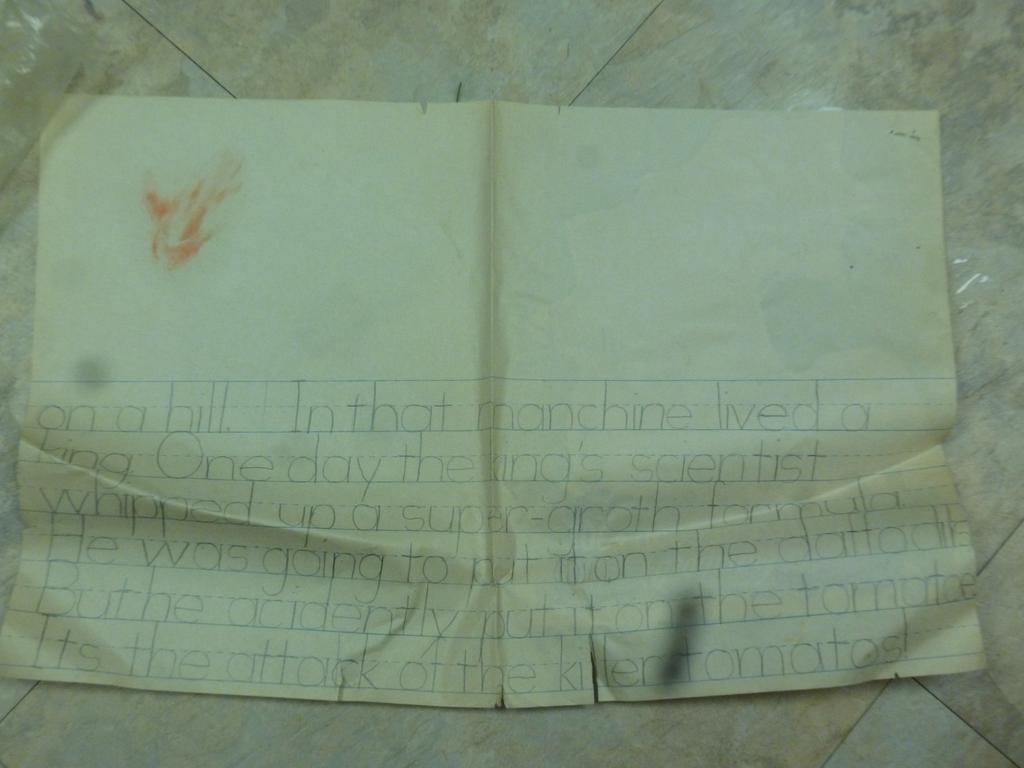 on a hill. In that manchine lived a
king. One day the king's scientist
whipped up a super-groth formula.
He was going to put it on the daffodils
But he acidently put it on the tomatoe
It's the attack of the killer tomatos!